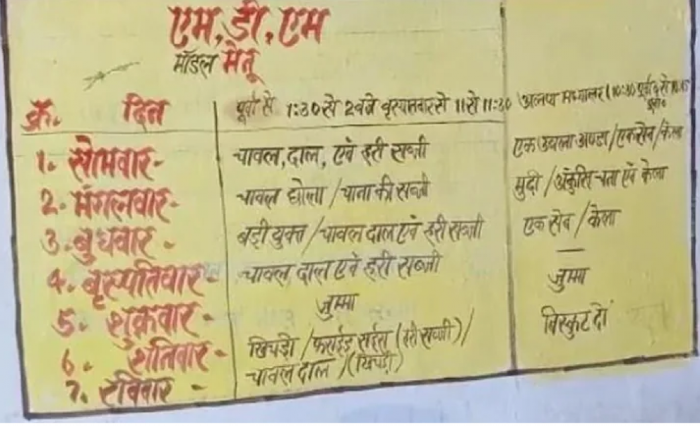 एम, डी, एम
मॉडल मेनू
क्र. दिन पूर्वा से 1:30 से 2 बजे वृस्पतवार से 11 से 11:30 (10:30
1. सोमवार - चावल, दाल, एवं हरी सब्जी एक उबला अण्डा / एक सेव / केला
2. मंगलवार - चावल छोला / चाना की सब्जी मुढ़ी / अंकुरित चना एवं केला
3. बुधवार - बड़ी युक्त / चावल दाल एवं हरी सब्जी एक सेव / केला
4. बृस्पतिवार - चावल, दाल एवं हरी सब्जी —
5. शुक्रवार - जुम्मा जुम्मा
6. शनिवार - खिचड़ी / फ्राईड राईस (हरी सब्जी) / बिस्कुट दो
7. रविवार - चावल दाल / (खिचड़ी)